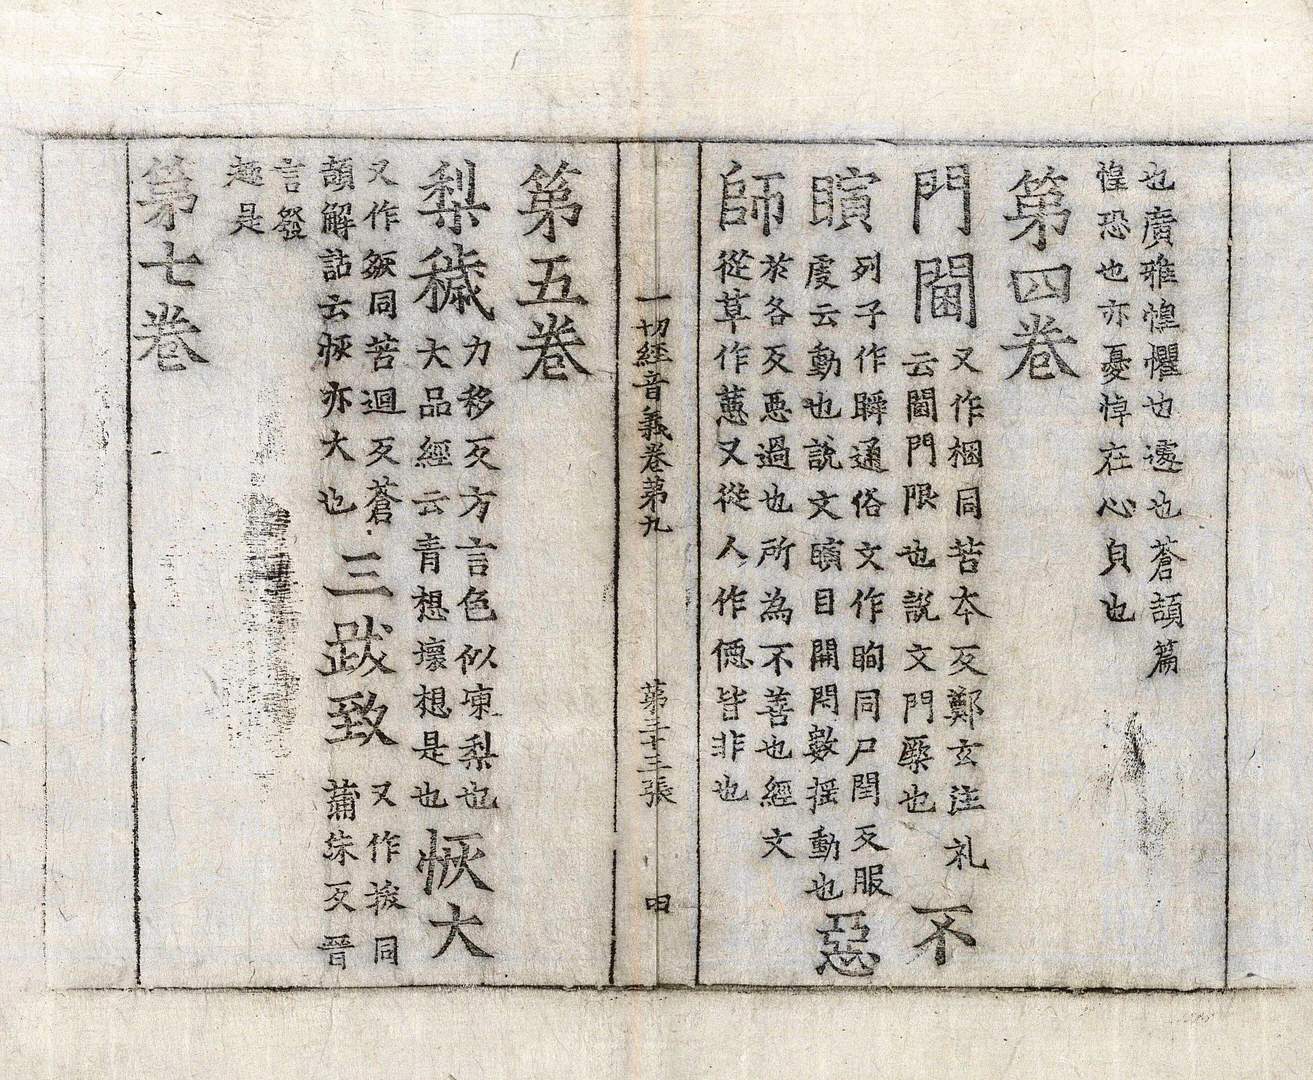 也廣雅惶懼也遽也蒼頡篇
惶恐也亦憂悼在心皃也
第四卷
門閫
又作梱同苦本反鄭玄注礼
云閫門限也說文門橜也
不
瞚
列子作瞬通俗文作眴同尸閏反服
虔云動也說文瞚目開閇數搖動也
惡
師
於各反惡過也所為不善也經文
從草作蕙又從人作僡皆非也
一切經音義卷第九
第三十三張
第五卷
梨穢
力移反方言色似凍梨也
大品經云青想壞想是也
恢大
又作𢘅同苦迴反蒼
頡解詁云恢亦大也
三跋致
又作拔同
蒲沫反晉
言發
趣是
第七卷